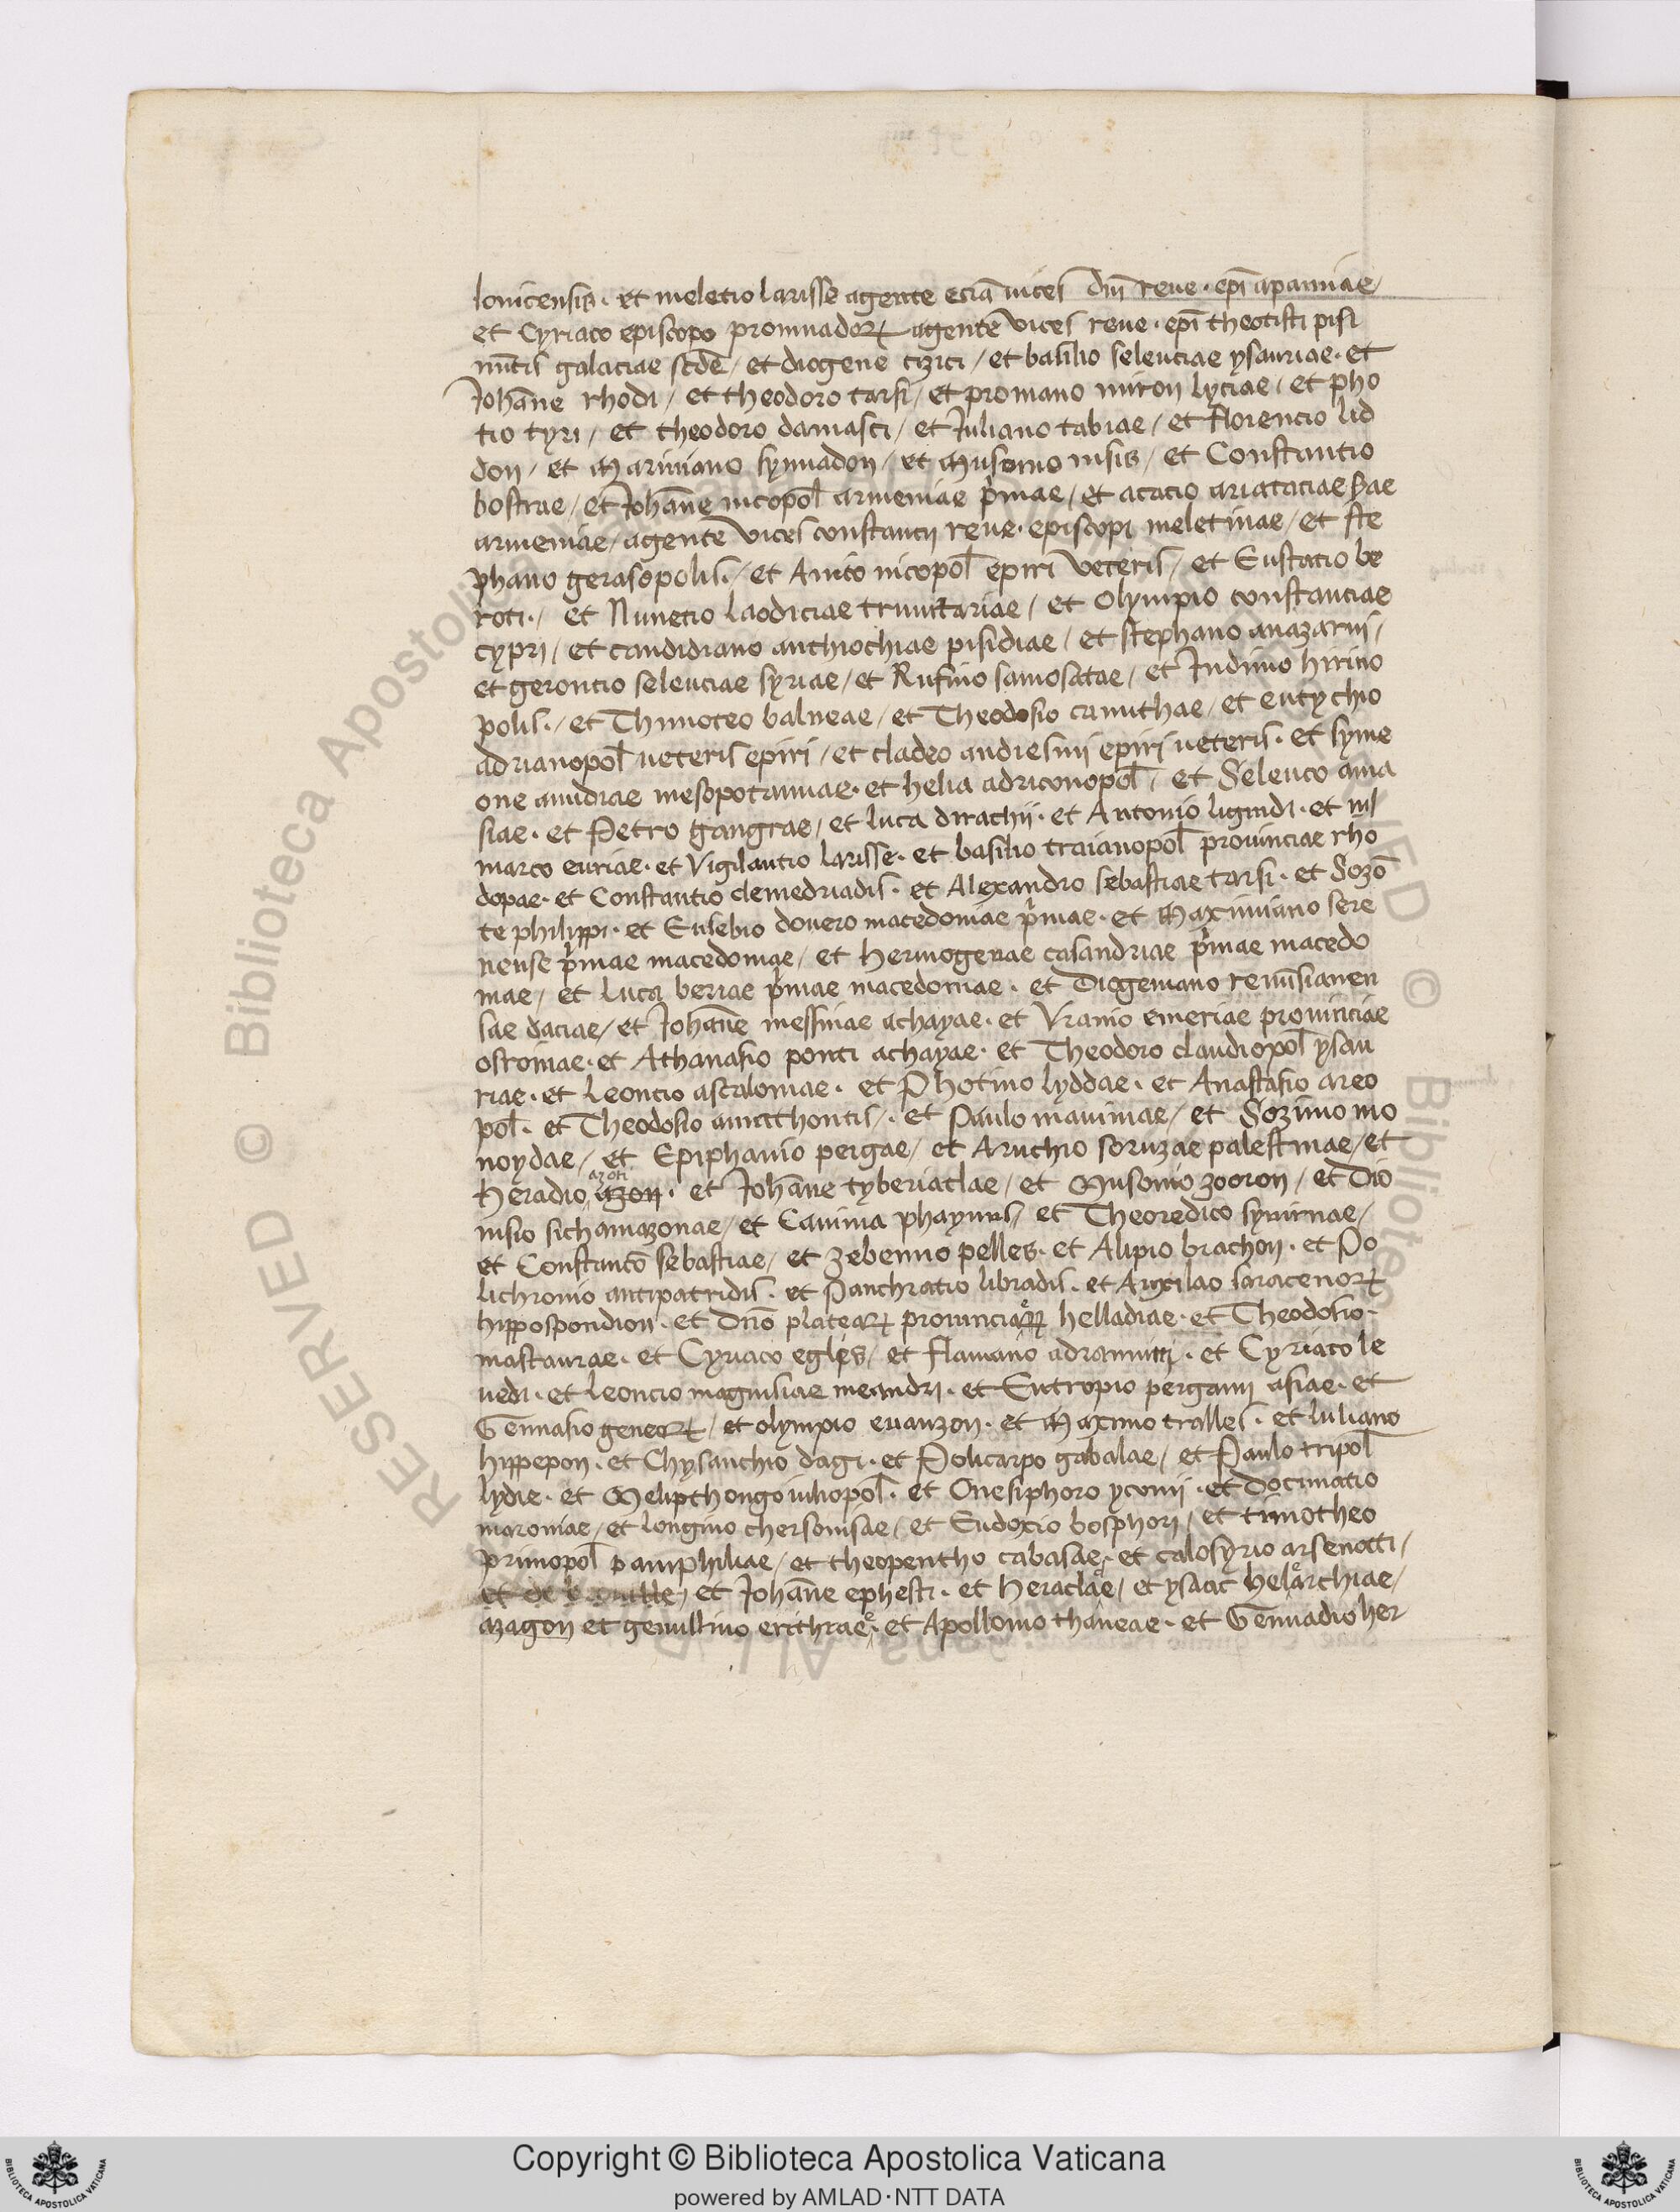 lonicensis · et meletio larisse agente eciā uices dn̄i reue · ep̄i apamiae /
et Cyriaco episcopo promnadorꝝ agente vices reue · ep̄i theotisti pisi
nūtis galaciae scd̄e / et diogene cizici / et basilio seleuciae ysauriae · et
Joha̅ne rhodi / et theodoro tarsi / et promano miron lyciae / et pho
tio tyri / et theodoro damasci / et Juliano tabiae / et florencio lid
don / et Mariniano synnadon / et Musonio nisis / et Constantio
bostrae / et Joha̅ne nicopol̄ armeniae pͥmae / et acacio ariataciae
armeniae / agente vices constancij reue · episcopi meletinae / et ste
phano gerasopolis · / et Anito nicopol̄ epiri veteris / et Eustatio be
roti · / et Nunetio laodiciae trinitariae / et olympio constanciae
cypri / et candidiano anthiochiae pisidiae / et stephano anazarni /
et geroncio seleuciae syriae / et Rufino samosatae / et Indimo hirino
polis · / et Thimoteo balneae / et Theodosio canuthae / et eutychio
adrianopol̄ ueteris epiri / et cladeo andiesini epiri ueteris · et syme
one amidrae mesopotamiae · et helia adriconopol̄ / et Seleuco ama
siae · et Petro gangrae / et luca dirachij · et Antonio lignidi · et
marco euriae · et Vigilantio larisse · et basilio traianopol̄ prouinciae rho
dopae · et Constantio demedriadis · et Alexandro sebastiae tarsi · et Sozō
te philippi · et Eusebio douero macedoniae pͥmae · et Maximiano sere
nense pͥmae macedoniae / et hermogenae casandriae pͥmae macedo
niae / et Luca berrae pͥmae macedoniae · et Diogeniano remisianen
sae daciae / et Joha̅ne messinae achayae · et Vranio emeriae prouinciae
osroinae · et Athanasio ponti achayae · et Theodoro claudiopol̄ ysau
riae · et Leoncio ascaloniae · et Photino lyddae · et Anastasio areo
pol̄ · et Theodosio amathontis / · et Paulo mauimae / et Sozimo mo
noydae / et Epiphanio pergae / et Aruchio soruzae palestinae / et
Heradio azoti azon · et Joha̅ne tyberiaclae / et Musonio zooron / et Dio
nisio sichamazonae / et Cauima phaynus / et Theoredico symirnae /
et Constantō sebastiae / et zebenno pelles · et Alipio brachon · et Po
lichronio antipatridis · et Panchratio libradis · et Auxilao saracenorꝝ
hippospondion · et Dn̄o platearꝝ prouinciarꝝ helladiae · et Theodosio ·
mastaurae · et Cyriaco eglis / et flamano adramitti · et Cyriaco le
uedi · et leoncio magnisiae meandri · et Eutropio pergami asiae · et
Gennasio geneorꝝ / et olympio euanzon · et Maximo tralles · et Iuliano
hippepon · et Chysanchio dagi · et Policarpo gabalae / et Paulo tripol̄
lydie · et Melipthongo iuliopol̄ · et Onesiphoro yconij · et Docimatio
maroniae / et longino chersonisae / et Eudoxio bosphori / et timotheo
primopol̄ pamphiliae / et theopentho cabasae · et calosyrio arsenoiti /
et de / et Joha̅ne ephesti · et heraclae / et ysaac helearchiae /
azagon et genullino erithrae · et Apollonio thaneae · et Gennadio her
Copyright © Biblioteca Apostolica Vaticana
powered by AMLAD·NTT DATA